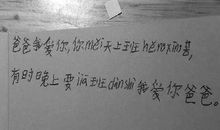 爸爸我爱你,你měi天上班hěnxīn苦,
有时晚上要jiā班dànshì我爱你爸爸。